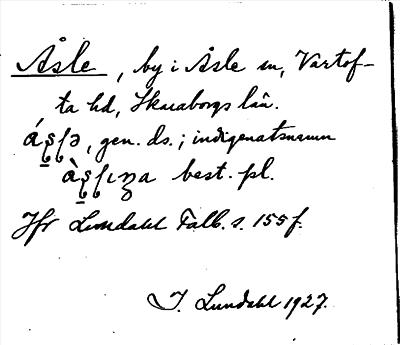 Åsle, by i Åsle sn, Vartof-
ta hd, Skaraborgs län.
gen. ds.; indigenatsnamn
best. pl.
Jfr Lundahl Falb. s. 155 f.
I. Lundahl 1927.